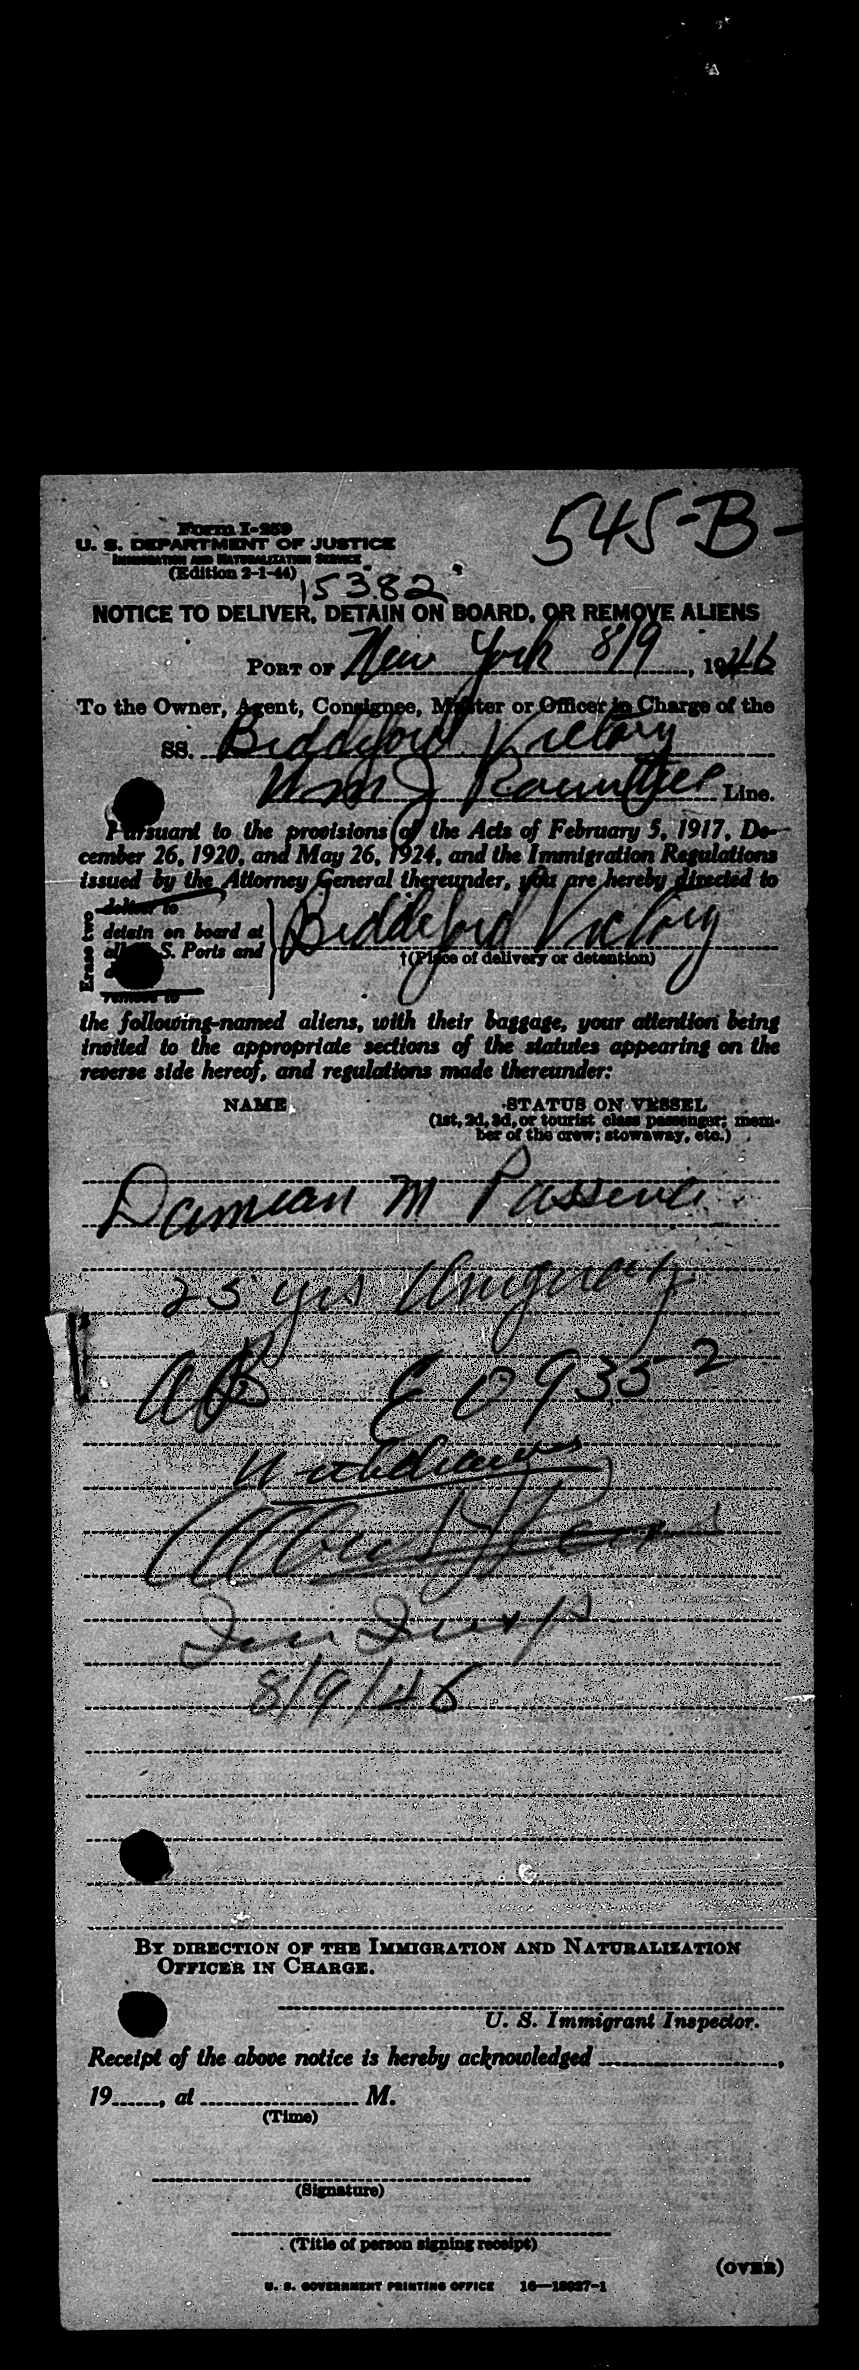 545-B-
Form I-259
U. S. DEPARTMENT OF JUSTICE
IMMIGRATION AND NATURALIZATION SERVICE
(Edition 2-1-44)
15382
NOTICE TO DELIVER, DETAIN ON BOARD, OR REMOVE ALIENS
PORT OF New York 8/9, 1946
To the Owner, Agent, Consignee, Master or Officer in Charge of the
SS. Biddeford Victory
Wm J Rountree Line.
Pursuant to the provisions of the Acts of February 5, 1917, De-
cember 26, 1920, and May 26, 1924, and the Immigration Regulations
issued by the Attorney General thereunder, you are hereby directed to
Erase two
deliver to
detain on board at
all U. S. Ports and
remove to
Biddeford Victory
†(Place of delivery or detention)
the following-named aliens, with their baggage, your attention being
invited to the appropriate sections of the statutes appearing on the
reverse side hereof, and regulations made thereunder:
NAME STATUS ON VESSEL
(1st, 2d, 3d, or tourist class passenger; mem-
ber of the crew; stowaway, etc.)
Damian M
25 yrs Uruguay
AB 09352
8/9/46
BY DIRECTION OF THE IMMIGRATION AND NATURALIZATION
OFFICER IN CHARGE.
U. S. Immigrant Inspector.
Receipt of the above notice is hereby acknowledged ,
19 , at M.
(Time)
(Signature)
(Title of person signing receipt)
(OVER)
U. S. GOVERNMENT PRINTING OFFICE 16—18027-1